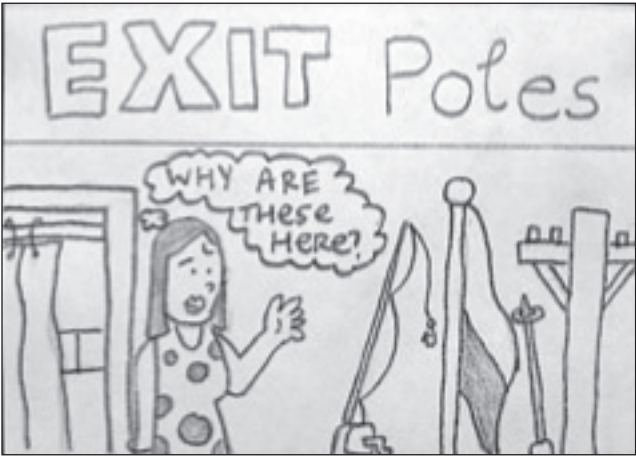 EXIT Poles
WHY ARE
THese
HERE?